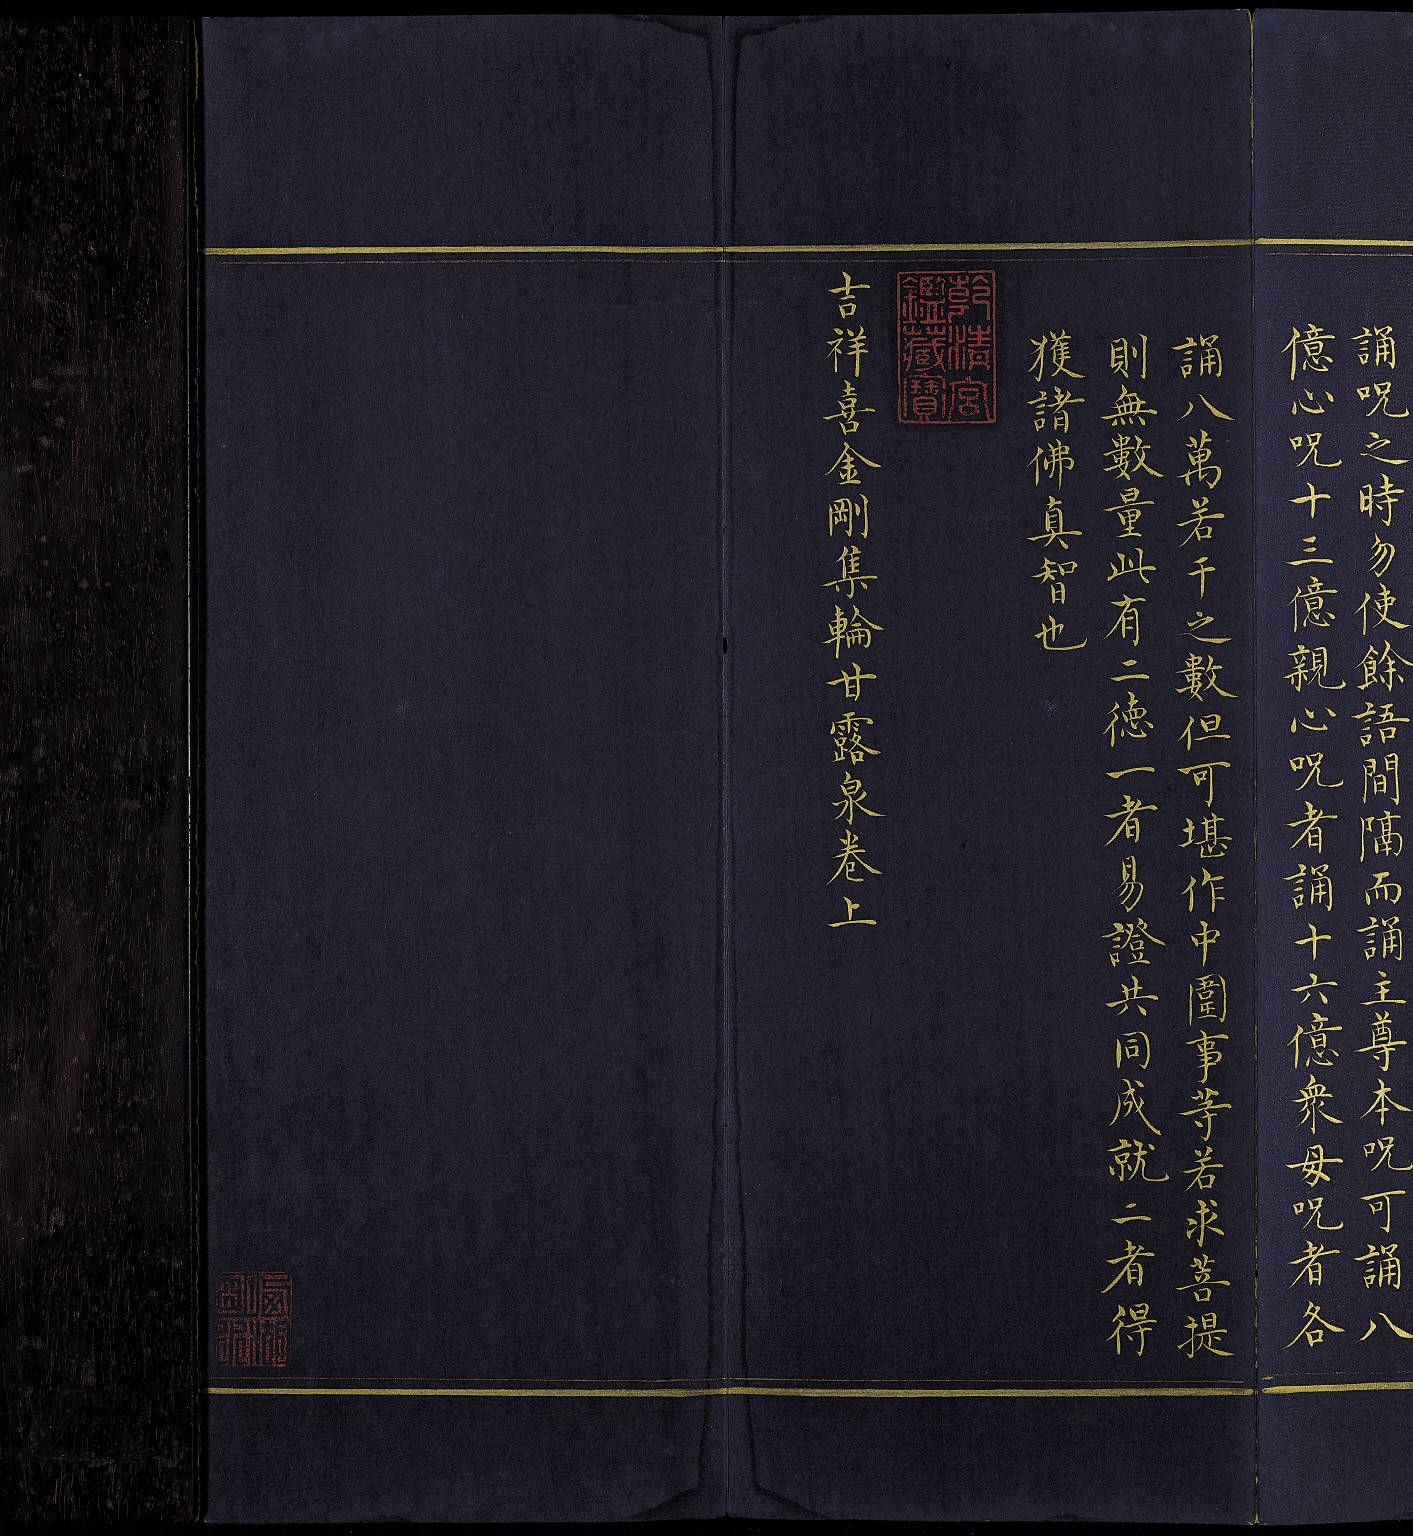 誦呪之時勿使餘語間隔而誦主尊本呪可誦八
億心呪十三億親心呪者誦十六億衆母呪者各
誦八萬若干之數但可堪作中圍事等若求菩提
則無數量此有二德一者易證共同成就二者得
獲諸佛真智也
乾清宮
鑑藏寶
吉祥喜金剛集輪甘露泉卷上